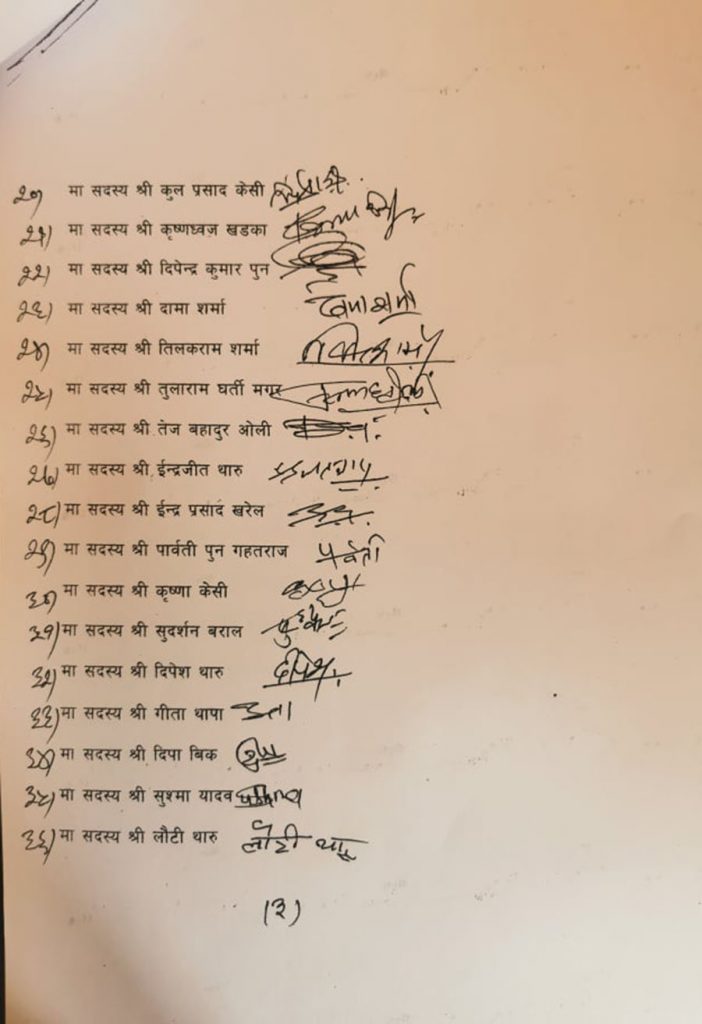 २०) मा सदस्य श्री कुल प्रसाद केसी
२१) मा सदस्य श्री कृष्णध्वज खडका
२२) मा सदस्य श्री दिपेन्द्र कुमार पुन
२३) मा सदस्य श्री दामा शर्मा
२४) मा सदस्य श्री तिलकराम शर्मा
२५) मा सदस्य श्री तुलाराम घर्ती मगर
२६) मा सदस्य श्री तेज बहादुर ओली
२७) मा सदस्य श्री ईन्द्रजीत थारु
२८) मा सदस्य श्री ईन्द्र प्रसाद खरेल
२९) मा सदस्य श्री पार्वती पुन गहतराज पार्वती
३०) मा सदस्य श्री कृष्णा केसी
३१) मा सदस्य श्री सुदर्शन बराल
३२) मा सदस्य श्री दिपेश थारु दीपेश
३३) मा सदस्य श्री गीता थापा
३४) मा सदस्य श्री दिपा बिक
३५) मा सदस्य श्री सुश्मा यादव
३६) मा सदस्य श्री लौटी थारु लौटी थारू
(३)